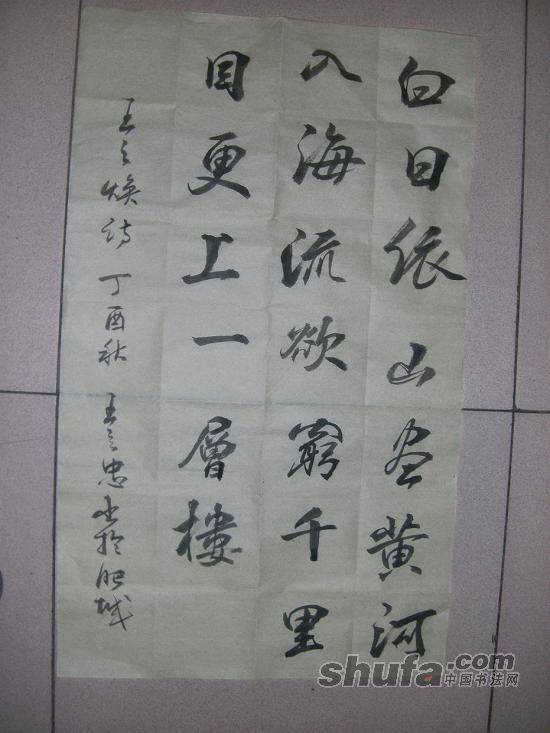 白日依山尽黄河
入海流欲窮千里
目更上一層樓
王之焕诗 丁酉秋 王之忠书於肥城
shufa.com
中国书法网